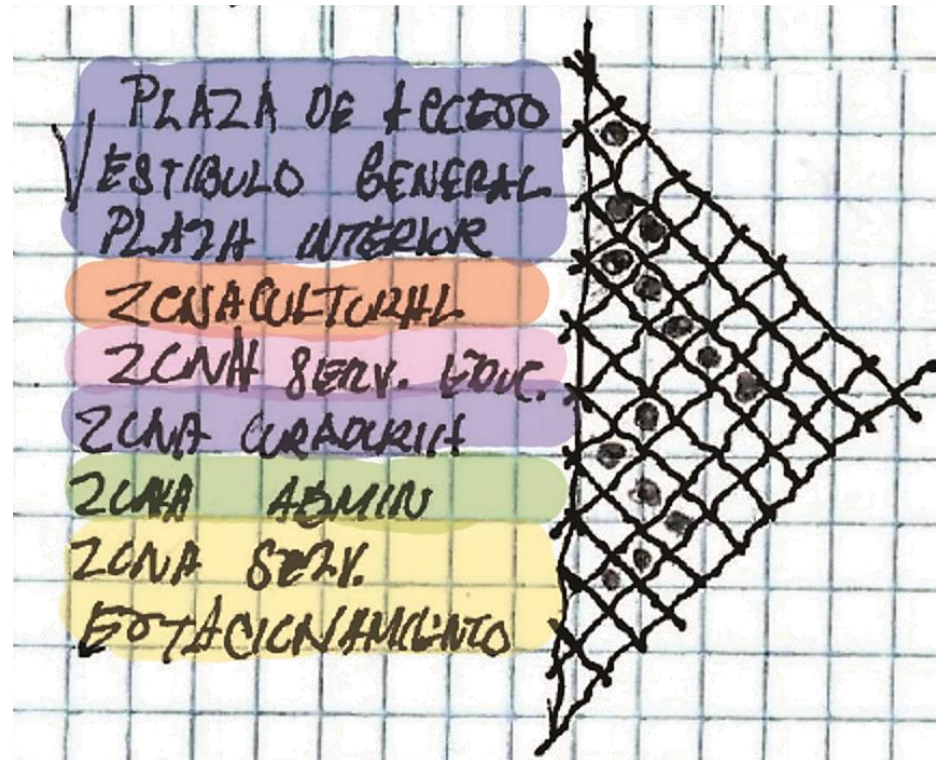 PLAZA DE ACCESO
VESTIBULO GENERAL
PLAZA INTERIOR
ZONA CULTURAL
ZONA SERV. EDUC.
ZONA CURADURIA
ZONA ADMIN
ZONA SERV.
ESTACIONAMIENTO